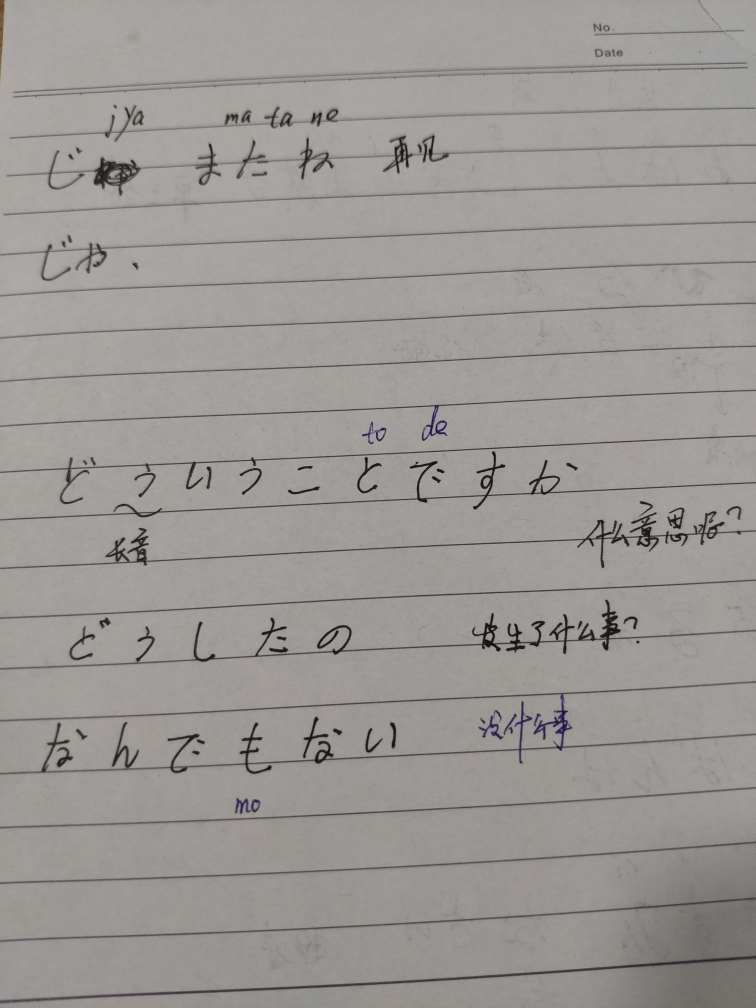 No.
Date
jya ma ta ne
じ またね 再见
じゃ、
to de
どういうことですか
长音 什么意思呢?
どうしたの 发生了什么事?
なんでもない 没什么事
mo